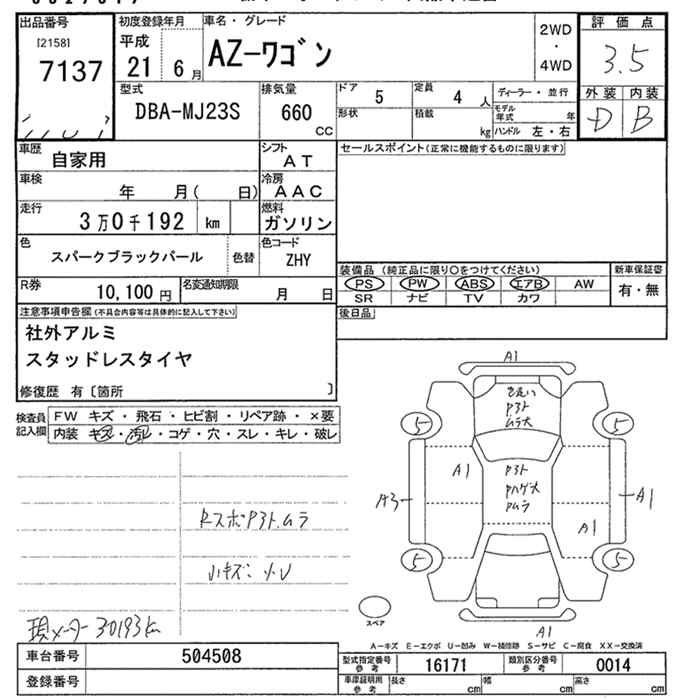 出品番号
[2158]
7137
初度登録年月
平成
21 6 月
車名・グレード
AZ-ワゴン
2WD
・
4WD
評価点
3.5
外装 内装
D B
型式
DBA-MJ23S
排気量
660
CC
ドア 5
定員 4 人
形状
積載
kg
ディーラー・並行
モデル年式 年
ハンドル 左・右
車歴
自家用
シフト
AT
セールスポイント(正常に機能するものに限ります)
車検
年 月( 日)
冷房
AAC
走行
3万0千192 km
燃料
ガソリン
色
スパークブラックパール
色替
色コード
ZHY
装備品(純正品に限り○をつけてください)
新車保証書
PS PW ABS エアB AW
SR ナビ TV カワ
有・無
R券
10,100 円
名変通知期限
月 日
注意事項申告欄(不具合内容等は具体的に記入して下さい)
社外アルミ
スタッドレスタイヤ
修復歴 有〔箇所 〕
後日品
検査員記入欄
FW キズ・飛石・ヒビ割・リペア跡・×要
内装 キズ・汚レ・コゲ・穴・スレ・キレ・破レ
A1
色違い
Pヲト
ムラ大
5 5
A1
Pヲト
PハゲX
Pムラ
A3 A1
A1
5 5
A1
スペア
RスポPヲト.ムラ
小キズ:
現メーター30193km
A-キズ E-エクボ U-凹み W-補修跡 S-サビ C-腐食 XX-交換済
車台番号
504508
登録番号
型式指定番号
参考
16171
類別区分番号
参考
0014
車庫証明用
参考
長さ cm
幅 cm
高さ cm